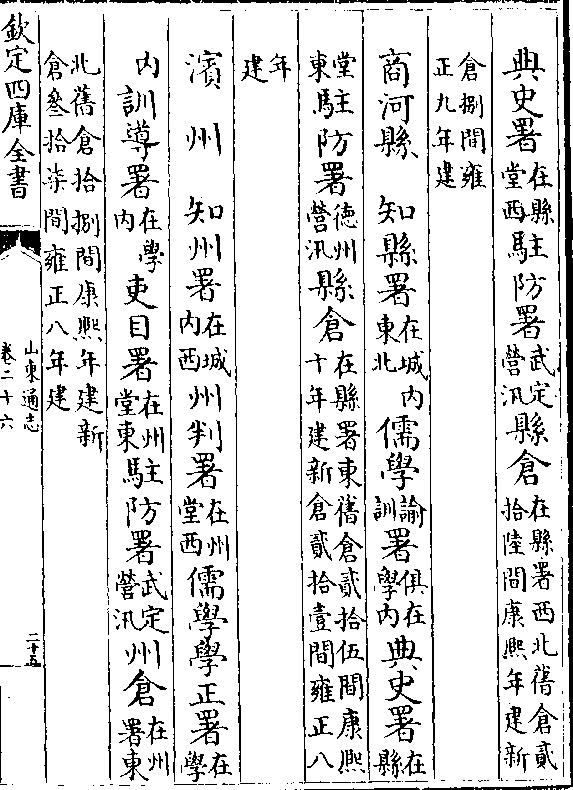 典史署在縣堂西駐防署武定營汛縣倉在縣署西北舊倉貳拾陸間康熙年建新
倉捌間雍正九年建
商河縣 知縣署在城内東北儒學諭訓署俱在學内典史署在縣
堂東駐防署徳州營汛縣倉在縣署東舊倉貳拾伍間康熙十年建新倉貳拾壹間雍正八
年建
濱州 知州署在城内西州判署在州堂西儒學學正署在學
内訓導署在學内吏目署在州堂東駐防署武定營汛州倉在州署東
北舊倉拾捌間康熙年建新倉叄拾柒間雍正八年建
欽定四庫全書
山東通志
卷二十六
二十五